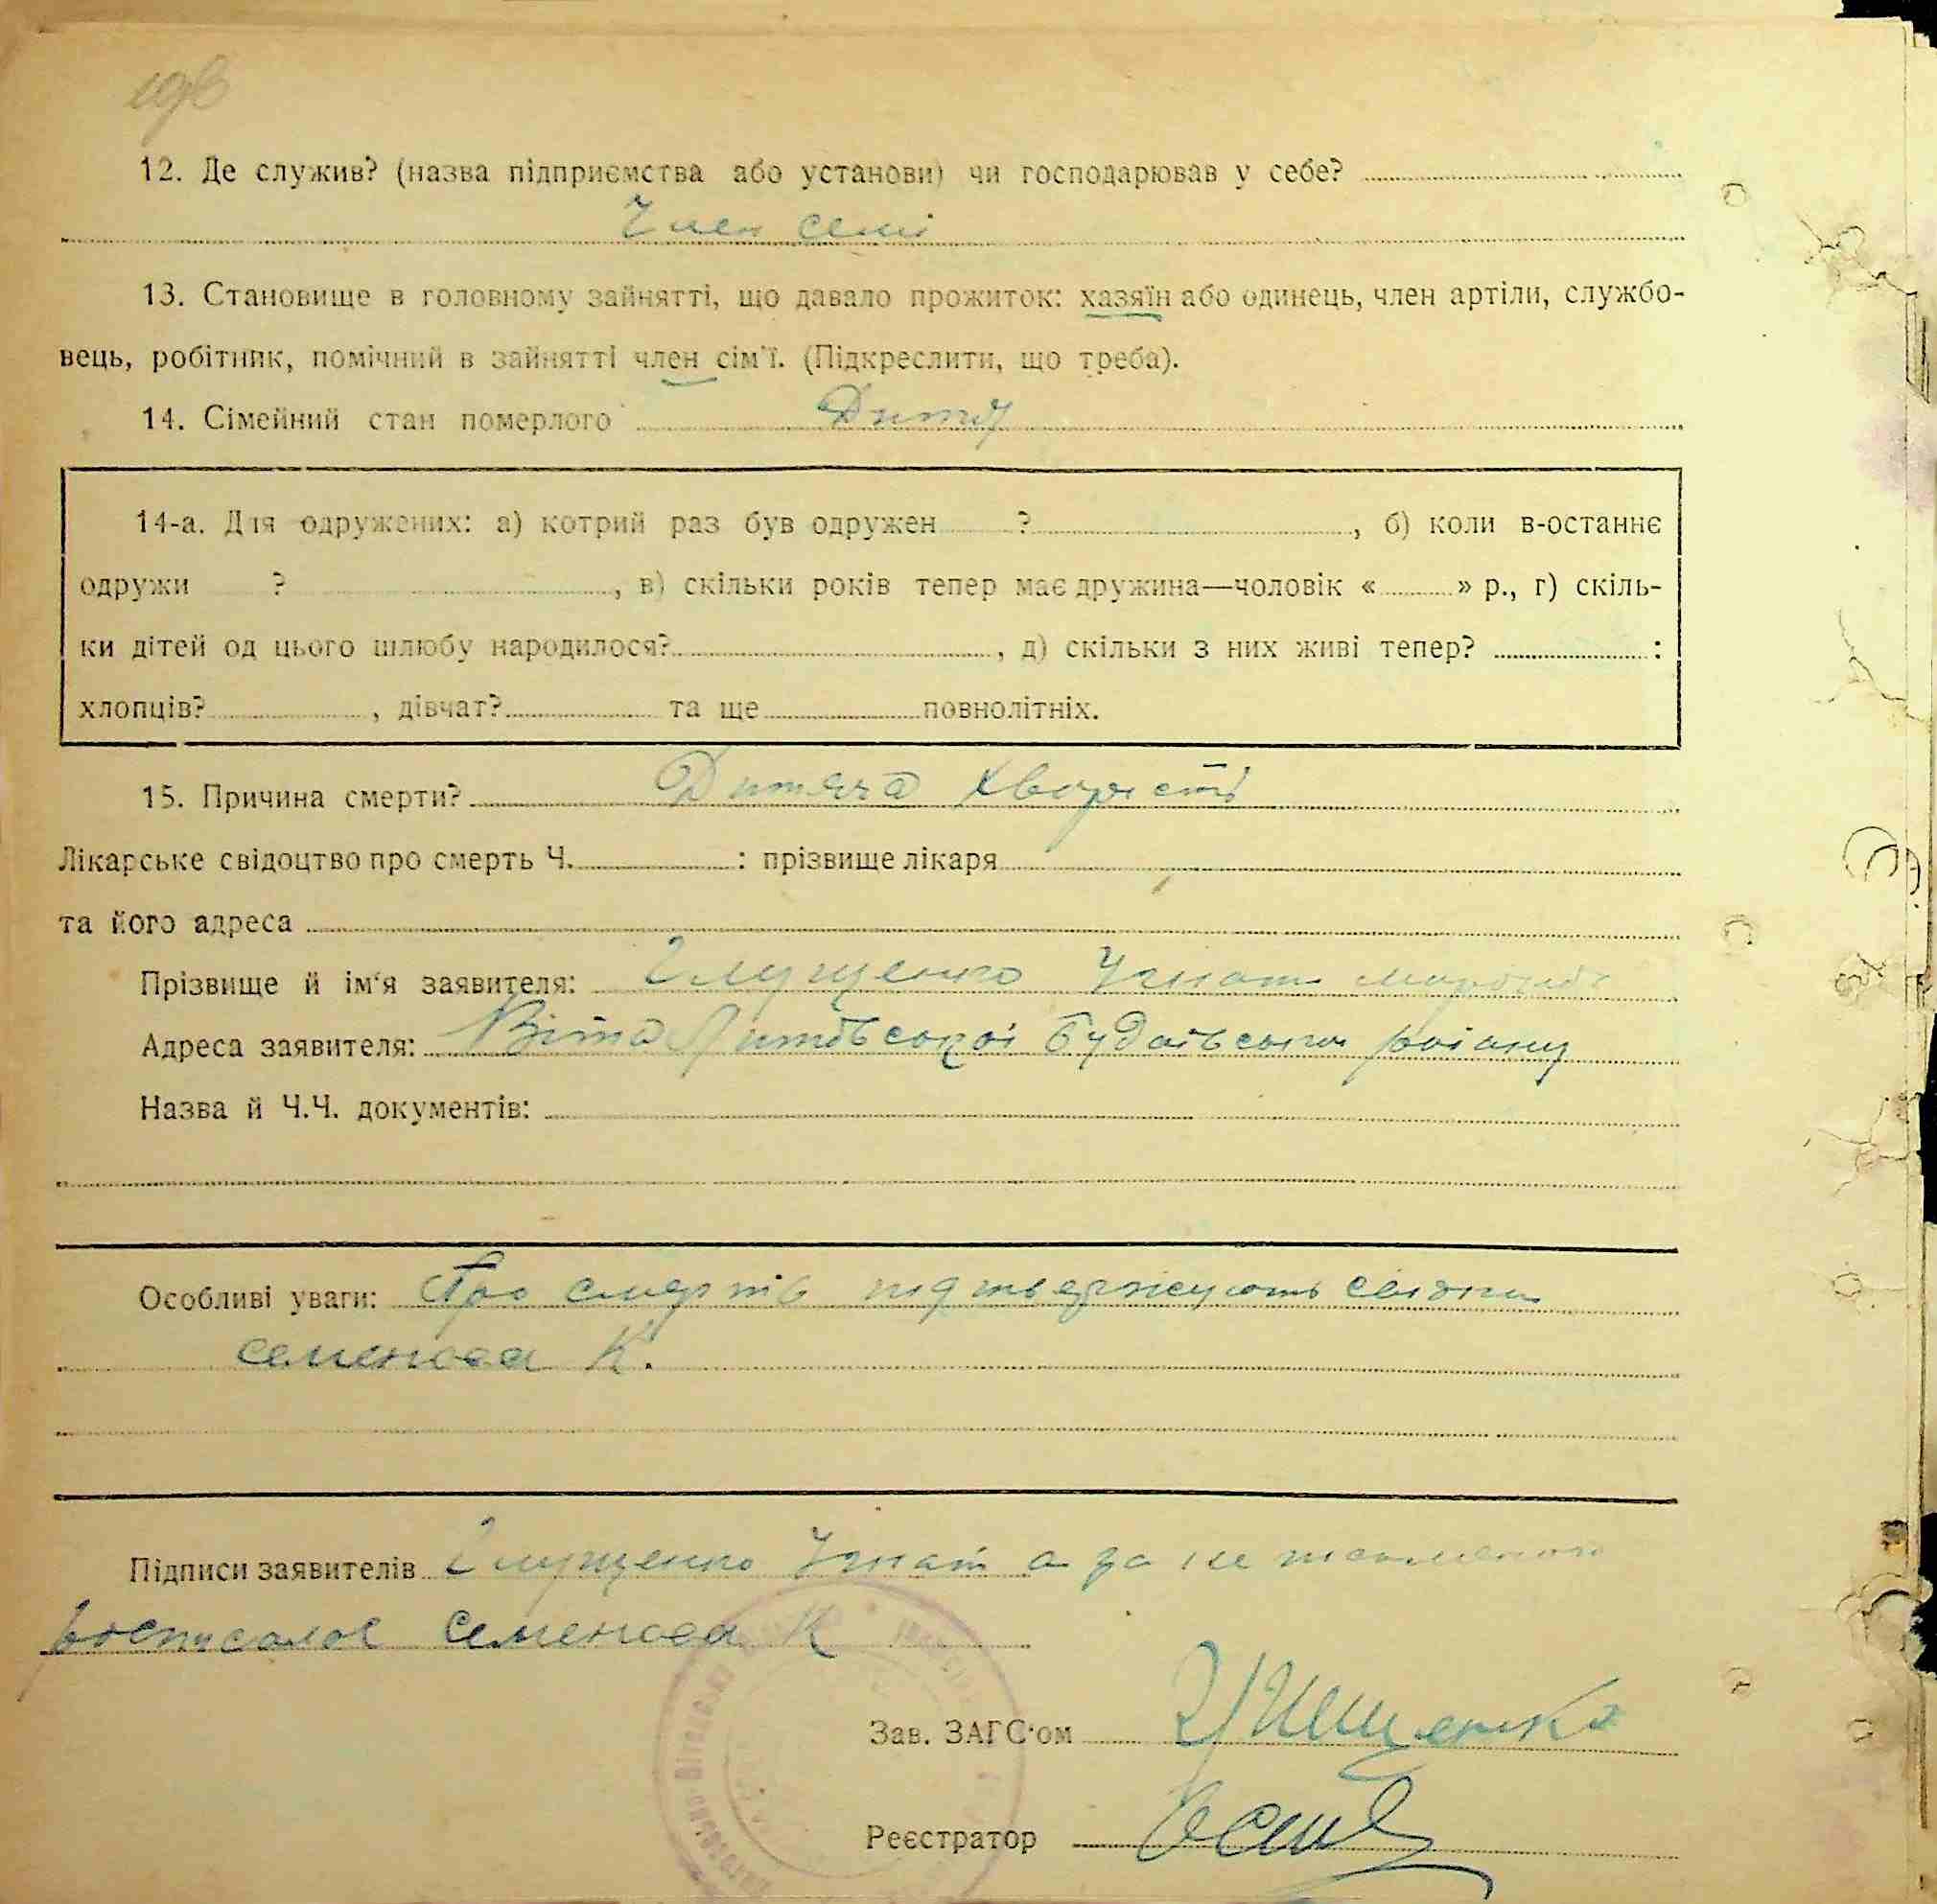 12. Де служив? (назва підприємства або установи) чи господарював у себе?
Член семі
13. Становище в головному зайнятті, що давало прожиток: хазяїн або одинець, член артіли, службо-
вець, робітник, помічний в зайнятті член сім'ї. (Підкреслити, що треба).
14. Сімейний стан померлого Дитя
14-а. Для одружених: а) котрий раз був одружен ? , б) коли в-останнє
одружи ? , в) скільки років тепер має дружина—чоловік « » р., г) скіль-
ки дітей од цього шлюбу народилося? , д) скільки з них живі тепер? :
хлопців? , дівчат? та ще повнолітніх.
15. Причина смерти? Дитяча
Лікарське свідоцтво про смерть Ч. : прізвище лікаря
та його адреса
Прізвище й ім'я заявителя: Глущенко Гнат
Адреса заявителя: Віта Литовської Будаївського району
Назва й Ч.Ч. документів:
Особливі уваги: Про смерть підтверджують
Семенова К.
Підписи заявителів Глущенко Гнат а за
росписалов Семенова К
Зав. ЗАГС'ом
Реєстратор